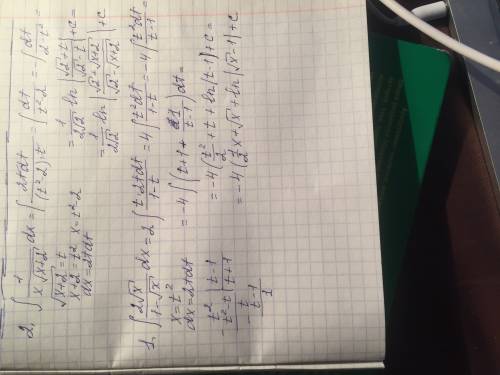 2. ∫ 1/(x√(x+2)) dx = ∫ 2tdt/((t²-2)·t) = ∫ dt/(t²-2) = -∫ dt/(2-t²) =
√(x+2) = t
x+2 = t² x = t²-2
dx = 2tdt
= 1/(2√2) ln |(√2+t)/(√2-t)| + C =
= 1/(2√2) ln |(√2+√(x+2))/(√2-√(x+2))| + C
1. ∫ 2√x/(1-√x) dx = 2 ∫ t·2tdt/(1-t) = 4 ∫ t²dt/(1-t) = -4 ∫ t²dt/(t-1) =
x = t²
dx = 2tdt
= -4 ∫ (t+1+ 1/(t-1)) dt =
t² | t-1
- t²-t | t+1
t
- t-1
1
= -4 (t²/2 + t + ln|t-1|) + C =
= -4 (1/2 x + √x + ln|√x-1|) + C